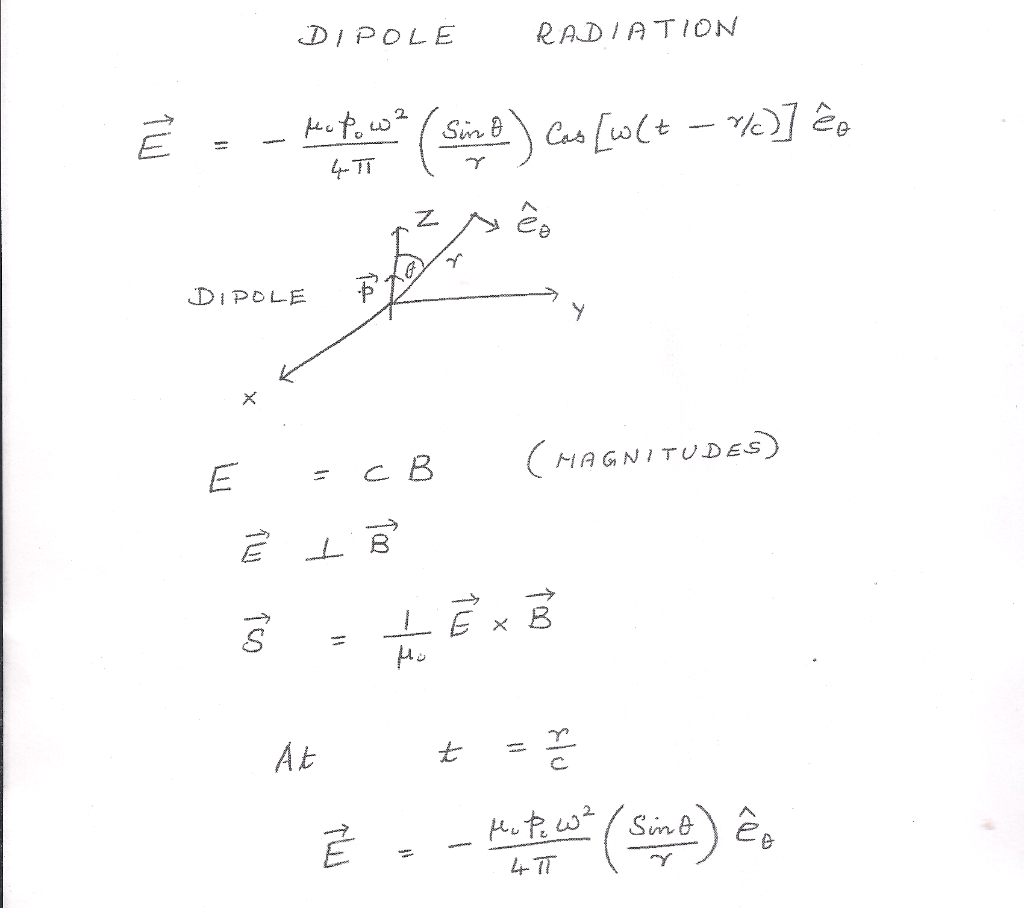 DIPOLE RADIATION
E⃗ = - μ₀p₀ω²/4π (Sinθ/r) Cos[ω(t - r/c)] ê_θ
Z ê_θ
θ r
DIPOLE p⃗
Y
X
E = cB (MAGNITUDES)
E⃗ ⊥ B⃗
S⃗ = 1/μ₀ E⃗ × B⃗
At t = r/c
E⃗ = - μ₀p₀ω²/4π (Sinθ/r) ê_θ